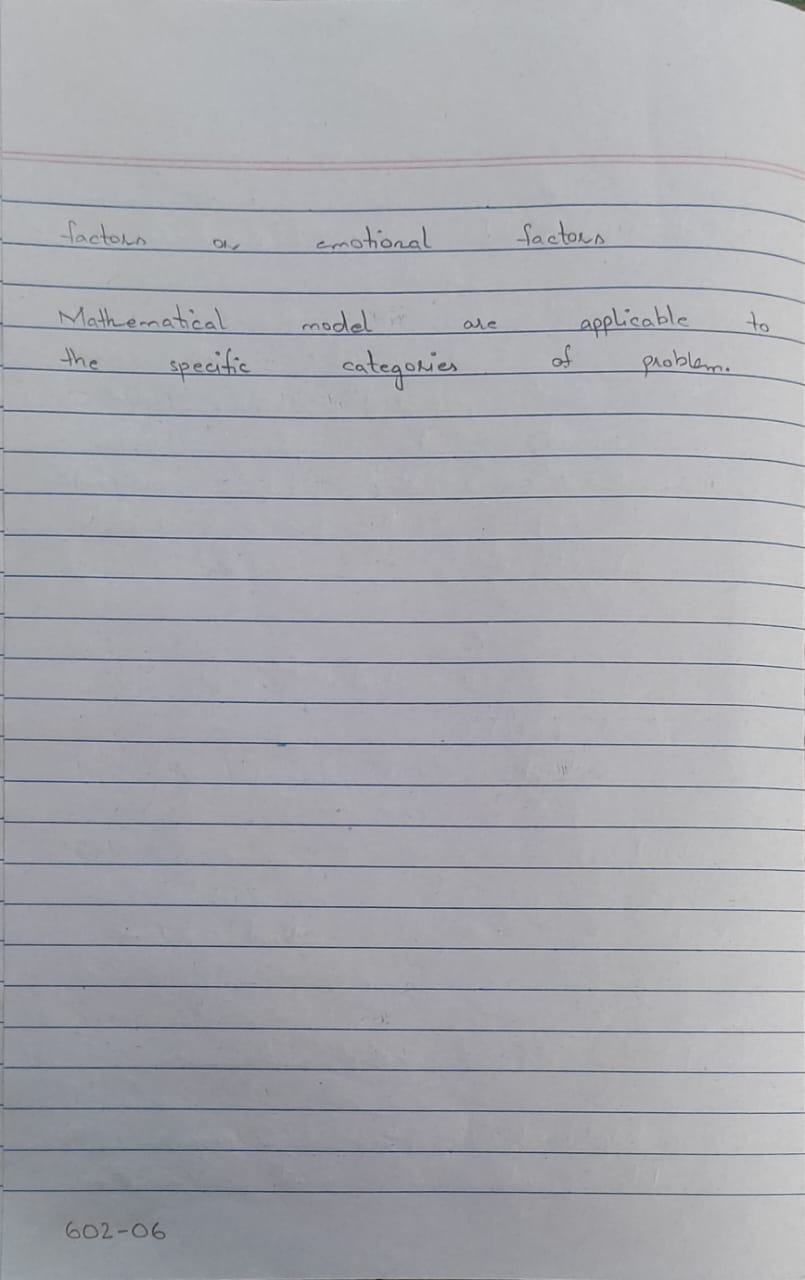 factors or emotional factors
Mathematical model are applicable to
the specific categories of problem.
602-06